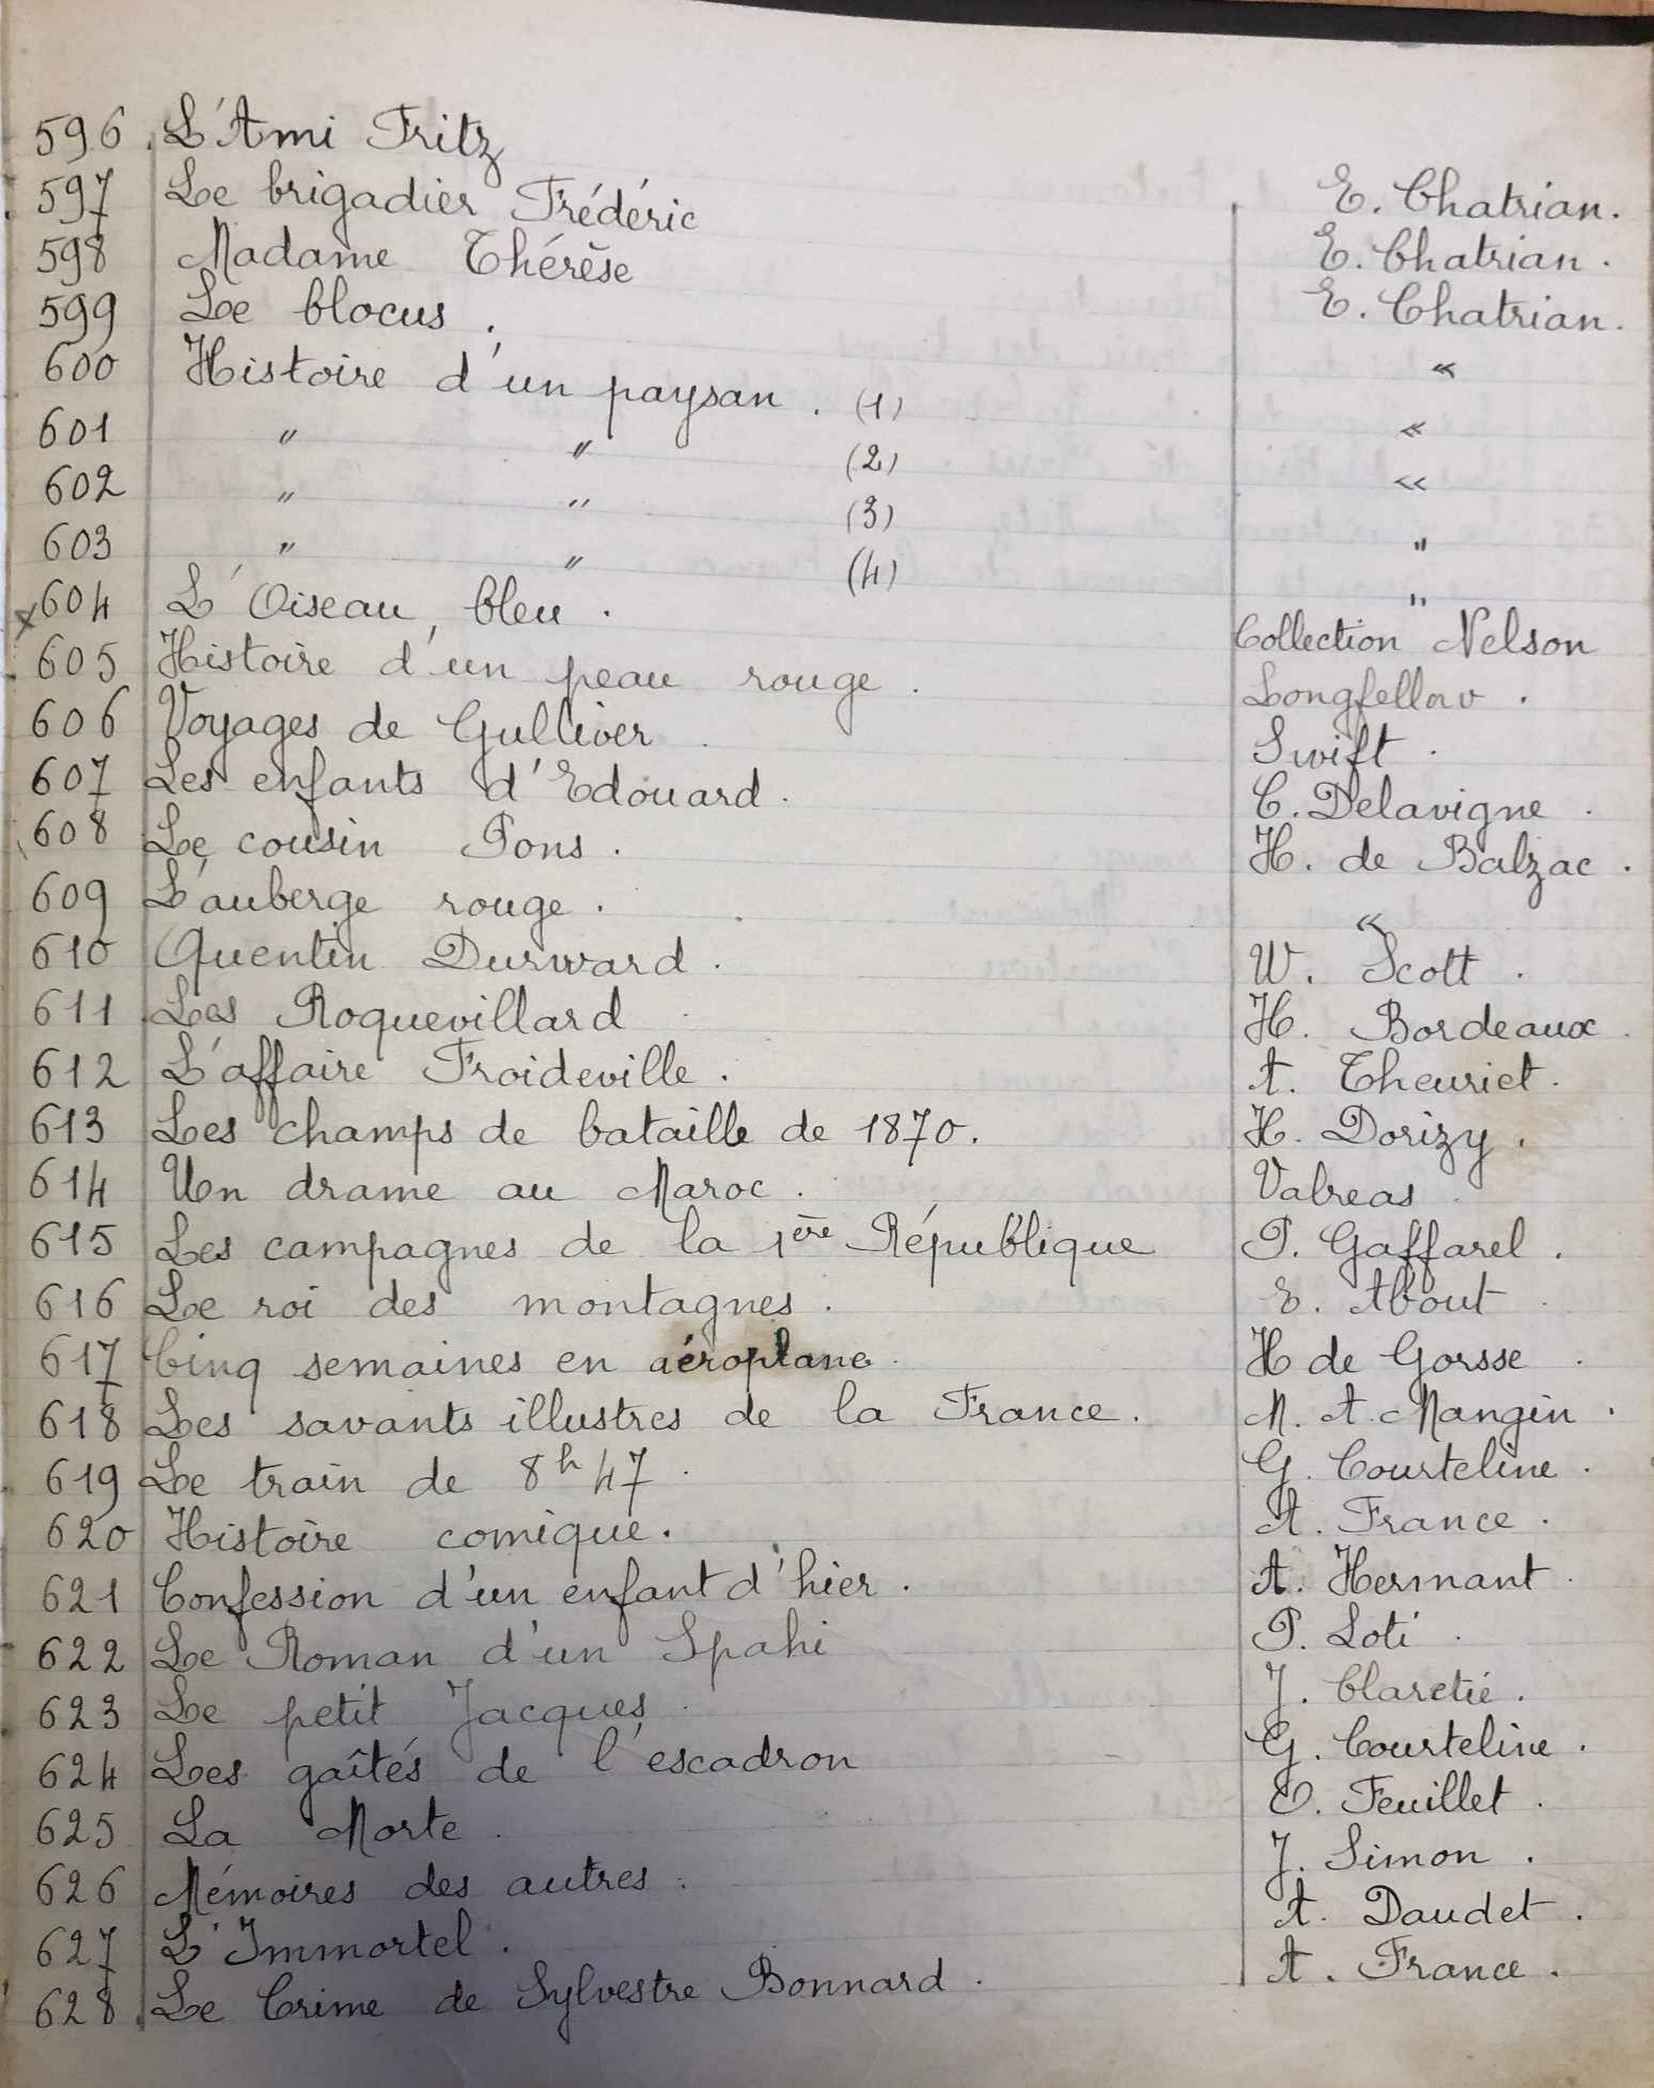 596 L'Ami Fritz E. Chatrian.
597 Le brigadier Frédéric E. Chatrian.
598 Madame Thérèse E. Chatrian.
599 Le blocus. «
600 Histoire d'un paysan. (1) «
601 " " (2) «
602 " " (3) "
603 " " (4) "
x 604 L'Oiseau bleu. Collection Nelson
605 Histoire d'un peau rouge. Longfellow.
606 Voyages de Gulliver. Swift.
607 Les enfants d'Edouard. C. Delavigne.
608 Le cousin Pons. H. de Balzac.
609 L'auberge rouge. «
610 Quentin Durward. W. Scott.
611 Les Roquevillard H. Bordeaux.
612 L'affaire Froideville. A. Theuriet.
613 Les champs de bataille de 1870. H. Dorizy.
614 Un drame au Maroc. Valreas.
615 Les campagnes de la 1ère République P. Gaffarel.
616 Le roi des montagnes. E. About.
617 Cinq semaines en aéroplane. H de Gorsse.
618 Les savants illustres de la France. M. A. Mangin.
619 Le train de 8h47. G. Courteline.
620 Histoire comique. A. France.
621 Confession d'un enfant d'hier. A. Hermant.
622 Le Roman d'un Spahi P. Loti.
623 Le petit Jacques. J. Claretie.
624 Les gaîtés de l'escadron G. Courteline.
625 La Morte. O. Feuillet.
626 Mémoires des autres. J. Simon.
627 L'Immortel. A. Daudet.
628 Le Crime de Sylvestre Bonnard. A. France.